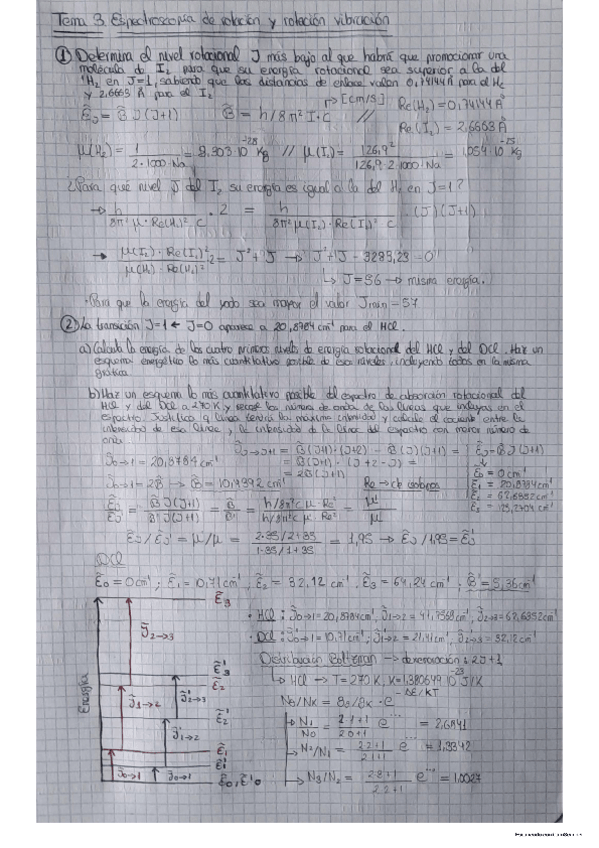 Tema 3. Espectroscopía de rotación y rotación vibración
① Determina el nivel rotacional J más bajo al que habrá que promocionar una
molécula de I₂ para que su energía rotacional sea superior a la del
H₂ en J=1, sabiendo que las distancias de enlace valen 0,74144 Å para el H₂
y 2,6663 Å para el I₂
Ẽ_J = B̃ J(J+1)   B̃ = h/8π²I·c   → [cm/s]   //   Re(H₂) = 0,74144 Å
Re(I₂) = 2,6663 Å
μ(H₂) = 1 / 2·1000·Na = 8,303·10⁻²⁸ kg // μ(I₂) = 126,9² / 126,9·2·1000·Na = 1,054·10⁻²⁵ kg
¿Para qué nivel J del I₂ su energía es igual a la del H₂ en J=1?
→ h / 8π²μ·Re(H₂)²c · 2 = h / 8π²μ(I₂)·Re(I₂)²c · (J)(J+1)
→ μ(I₂)·Re(I₂)² / μ(H₂)·Re(H₂)² · 2 = J²+J → J²+J - 3283,23 = 0
↳ J=56 → misma energía.
· Para que la energía del yodo sea mayor el valor Jmin = 57
② La transición J=1 ← J=0 aparece a 20,8784 cm⁻¹ para el HCl.
a) Calcula la energía de los cuatro primeros niveles de energía rotacional del HCl y del DCl. Haz un
esquema energético lo más cuantitativo posible de esos niveles, incluyendo todos en la misma
gráfica.
b) Haz un esquema lo más cuantitativo posible del espectro de absorción rotacional del
HCl y del DCl a 270 K y recoge los números de onda de las líneas que incluyas en el
espectro. Justifica qué línea tendrá la máxima intensidad y calcula el cociente entre la
intensidad de esa línea y la intensidad de la línea del espectro con menor número de
onda.
ν̃J→J+1 = B̃(J+1)·(J+2) - B̃(J)(J+1) =
ν̃0→1 = 20,8784 cm⁻¹   = B̃(J+1)·(J+2-J) =
= 2B̃(J+1)
Ẽ_J = B̃J(J+1)
Ẽ₀ = 0 cm⁻¹
Ẽ₁ = 20,8784 cm⁻¹
Ẽ₂ = 62,6352 cm⁻¹
Ẽ₃ = 125,2704 cm⁻¹
ν̃0→1 = 2B → B̃ = 10,4392 cm⁻¹
Ẽ_J/Ẽ_J' = B̃J(J+1) / B̃'J(J+1) = B̃/B̃' = h/8π²c μ·Re² / h/8π²c μ'·Re² = μ'/μ
Ẽ_J/Ẽ_J' = μ'/μ = 2·35/2+35 / 1·35/1+35 = 1,95 → Ẽ_J/1,95 = Ẽ_J'
DCl
Ẽ₀ = 0 cm⁻¹; Ẽ₁ = 10,71 cm⁻¹, Ẽ₂ = 32,12 cm⁻¹. Ẽ₃ = 64,24 cm⁻¹; B̃' = 5,36 cm⁻¹
Energía
Ẽ₃
ν̃2→3
Ẽ'₃
Ẽ₂
ν̃1→2
ν̃'2→3
Ẽ'₂
ν̃'1→2
Ẽ₁
Ẽ'₁
ν̃0→1
ν̃'0→1
Ẽ₀, Ẽ'₀
· HCl: ν̃0→1 = 20,8784 cm⁻¹, ν̃1→2 = 41,7568 cm⁻¹, ν̃2→3 = 62,6352 cm⁻¹
· DCl: ν̃'0→1 = 10,71 cm⁻¹; ν̃'1→2 = 21,41 cm⁻¹, ν̃'2→3 = 32,12 cm⁻¹
Distribución Boltzman → degeneración: 2J+1
↳ HCl → T = 270 K, K = 1,380649·10⁻²³ J/K
NJ/NK = gJ/gK · e^(-ΔE/KT)
→ N₁/N₀ = 2·1+1 / 2·0+1 e^… = 2,6841
→ N₂/N₁ = 2·2+1 / 2·1+1 e^… = 1,3342
→ N₃/N₂ = 2·3+1 / 2·2+1 e^… = 1,0027